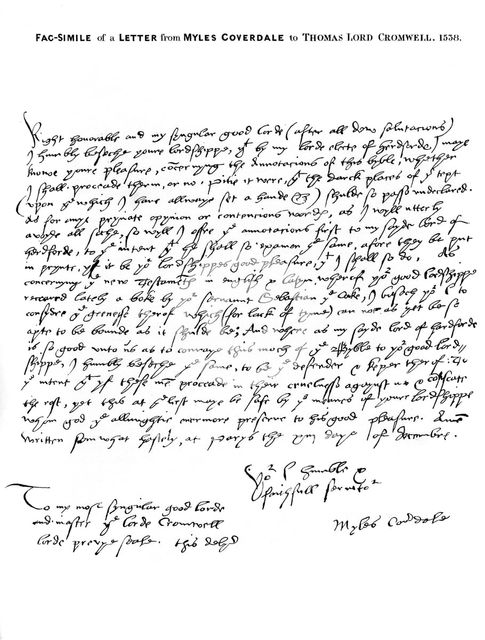 FAC-SIMILE of a LETTER from MYLES COVERDALE to THOMAS LORD CROMWELL. 1538.
Right honorable and my syngular good lorde (after all dew salutacions)
I humbly beseche youre lordshippe, yt by my lorde electe of herdforde I maye
knowe youre pleasure, concernyng the annotacions of this byble, whether
I shall proceade therin, or no. Pitie it were, yt the darck places of ye text
(upon ye which I have allwaye set a hande) shulde so passe undeclared.
As for eny pryvate opynion or contencious wordes, as I wyll utterly
avoyde all soche, so wyll I offre ye annotacions first to my sayde lord of
herdforde, to ye intent yt he shall so examen ye same, afore they be put
in prynte, yf it be yor lordshippes good pleasure, yt I shall so do. As
concernyng ye new Testamentes in english & latyn wherof yor good lordshippe
receaved lately a boke by yor servaunt Sebastian ye Coke, I besech yor L to
considre ye grenesse therof which (for lack of tyme) can not as yet be so
apte to be bounde as it shulde be; And where as my sayde lord of herdforde
is so good unto us as to convaye this moch of ye Byble to yor good lord//
shippe, I humbly beseche ye same, to be ye defender & keper therof: To
ye intent yt yf these men proceade in their cruelnesse agaynst us & confiscate
the rest, yet this at ye lest maye be safe by ye meanes of youre lordshippe
whom god ye allmightie evermore preserve to his good pleasure. Amen
Written somwhat hastely, at Parys the xiij daye of decembre.
Yor L humble &
faithfull servitor
Myles Coverdale
To my most syngular good lorde
and master ye lorde Cromwell
lorde prevye seale. this delyvered